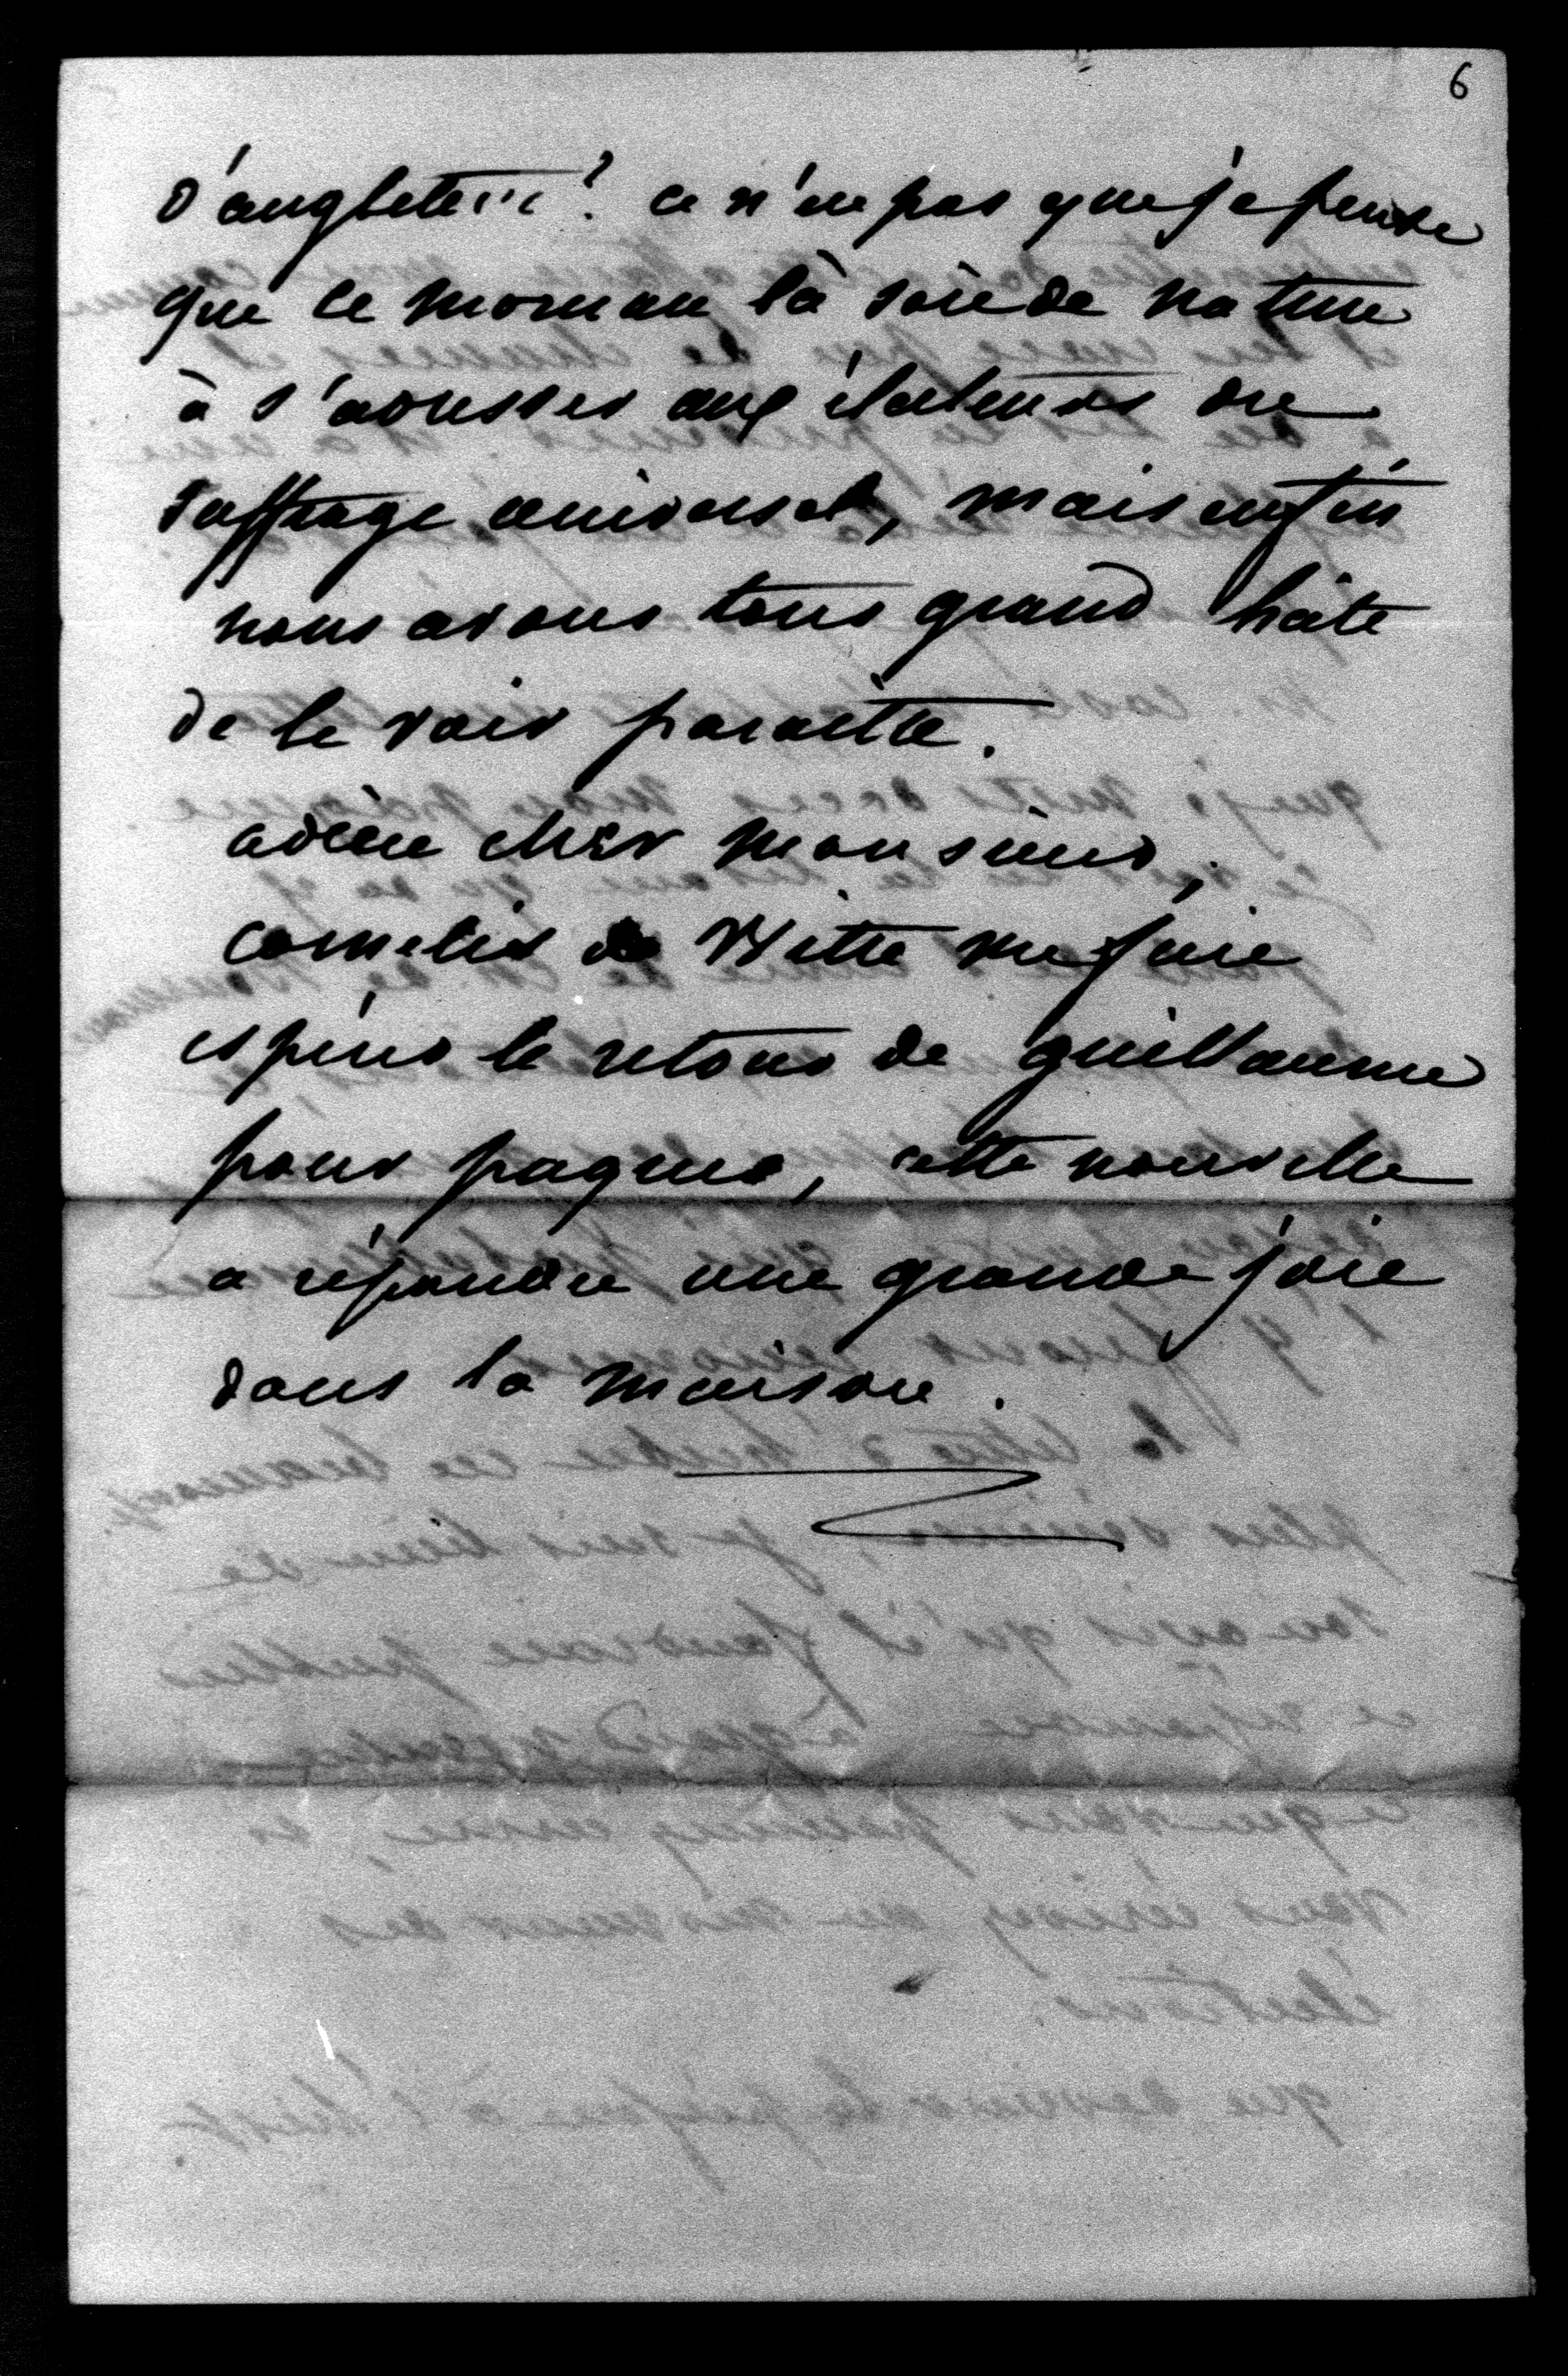 6
d'angleterre? ce n'est pas que je pense
que ce morceau là soit de nature
à s'adresser aux électeurs du
suffrage universel, mais enfin
nous avons tous grand hâte
de le voir paraitre.
adieu cher monsieur,
cornelis de Witte me fait
espérer le retour de guillaume
pour paques, cette nouvelle
a répandu une grande joie
dans la maison.